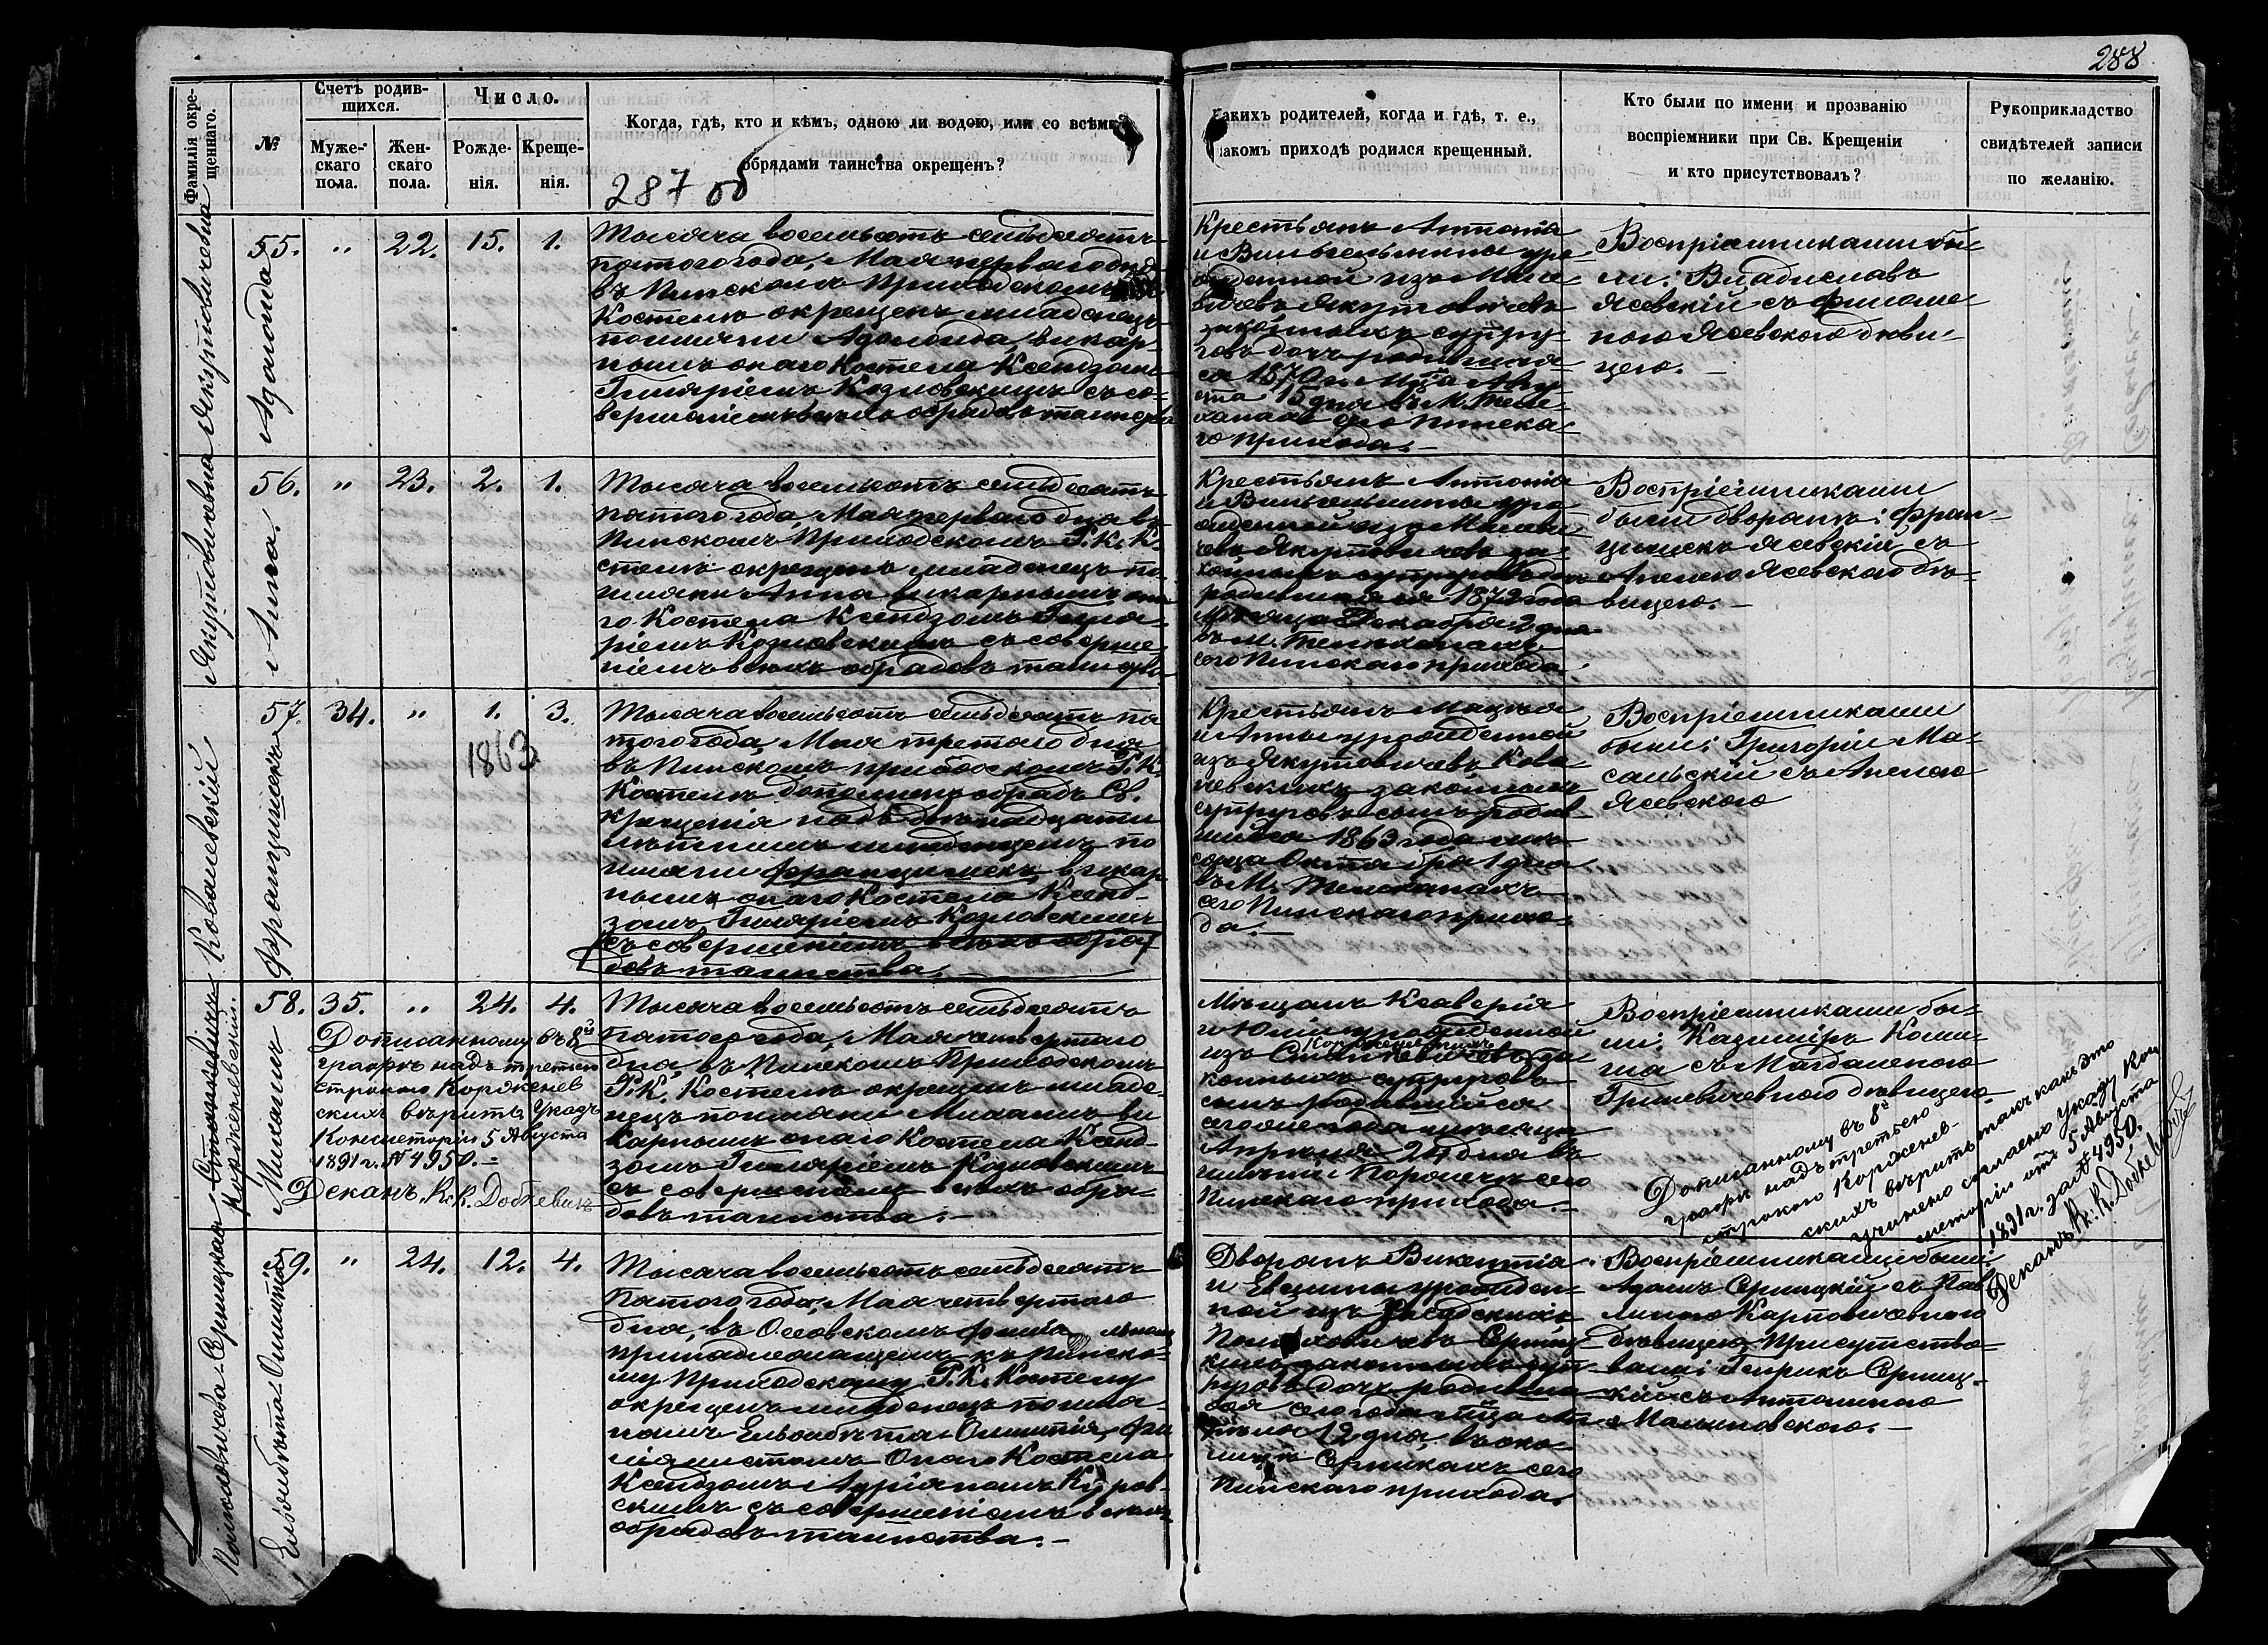 288
Фамилія окре-
щеннаго.
№
Счетъ родив-
шихся.
Муже-
скаго
пола.
Жен-
скаго
пола.
Число.
Рожде-
нія.
Креще-
нія.
Когда, гдѣ, кто и кѣмъ, одною ли водою, или со всѣми
обрядами таинства окрещенъ?
287 об
Какихъ родителей, когда и гдѣ, т. е.,
въ какомъ приходѣ родился крещенный.
Кто были по имени и прозванію
воспріемники при Св. Крещеніи
и кто присутствовалъ?
Рукоприкладство
свидѣтелей записи
по желанію.
Якутовичевна
55. „ 22. 15. 1.
Тысяча восемьсотъ семьдесятъ
пятого года, Мая первого дня
въ Пинскомъ Приходскомъ
Костелѣ окрещенъ младенецъ
викар-
нымъ онаго Костела Ксендзомъ
Гиляріемъ Козловскимъ съ со-
вершеніемъ всѣхъ обрядовъ таинства
Крестьянъ Антонія
и Вильгельмины уро-
жденной изъ
Якутовичевъ
законныхъ супру-
говъ дочь родившая-
ся 1870 г. М-ца Авгу-
ста 15 дня въ М. Теле-
ханахъ сего Пинска-
го прихода.—
Воспріемниками бы-
ли: Владиславъ
Ясевскій съ Филоме-
ною Ясевскою дѣви-
цею.—
Якутовичевна
Анна.
56. „ 23. 2. 1.
Тысяча восемьсотъ семьдесятъ
пятого года, Мая первого дня въ
Пинскомъ Приходскомъ Р. К. Ко-
стелѣ окрещенъ младенецъ по-
имени Анна викарнымъ она-
го Костела Ксендзомъ Гиля-
ріемъ Козловскимъ съ соверше-
ніемъ всѣхъ обрядовъ таинства
Крестьянъ Антонія
и Вильгельмины уро-
жденной изъ
Якутовичевъ за-
конныхъ супруговъ дочь
родившаяся 1872 года
Мѣсяца Декабря 2 дня
въ М. Телеханахъ
сего Пинскаго прихода.
Воспріемниками
были дворянъ: Фран-
цишекъ Ясевскій съ
Анелею Ясевскою дѣ-
вицею.—
Ковалевскій
Францишекъ
57. 34. „ 1. 3.
1863
Тысяча восемьсотъ семьдесятъ пя-
того года, Мая третьяго дня
въ Пинскомъ приходскомъ Р. К.
Костелѣ дополненъ обрядъ Св.
крещенія надъ двѣнадцати
лѣтнимъ младенцемъ по
имени Францишекъ, викар-
нымъ онаго Костела Ксенд-
зомъ Гиляріемъ Козловскимъ
съ совершеніемъ всѣхъ обря-
довъ таинства.—
Крестьянъ Мацѣя
и Анны урожденной
изъ Якутовичевъ Кова-
левскихъ законныхъ
супруговъ сынъ родив-
шійся 1863 года мѣ-
сяца Октября 1 дня
въ М. Телеханахъ
сего Пинскаго прихо-
да.—
Воспріемниками
были: Григорій Ма-
сальскій съ Анелею
Ясевскою
Корженевскій.
Михаилъ
58. 35. „ 24. 4.
Дописанному въ 8й
графѣ надъ третьею
строкою Корженев
скихъ вѣрить. Указъ
Консисторіи 5 Августа
1891 г. № 4950.—
Деканъ К. К. Добкевичъ
Тысяча восемьсотъ семьдесятъ
пятого года, Мая четвертаго
дня, въ Пинскомъ Приходскомъ
Р. К. Костелѣ окрещенъ младе-
нецъ по имени Михаилъ ви-
карнымъ онаго Костела Ксенд-
зомъ Гиляріемъ Козловскимъ
съ совершеніемъ всѣхъ обря-
довъ таинства.—
Мѣщанъ Ксаверія
и Юліи урожденной
Корженевскихъ
изъ за-
конныхъ супруговъ
сынъ родившійся
сего же года мѣсяца
Апрѣля 24 дня въ
имѣніи сего
Пинскаго прихода.—
Воспріемниками бы-
ли: Казиміръ
съ Магдаленою
Гриневичевною дѣвицею.
Дописанному въ 8й
графѣ надъ третьею
строкою Корженев-
скихъ вѣрить, такъ какъ это
учинено согласно указу Кон
систоріи отъ 5 Августа
1891 г. за № 4950.
Деканъ К. К. Добкевичъ
Ельжбѣта-Олимпія
59. „ 24. 12. 4.
Тысяча восемьсотъ семьдесятъ
пятого года, Мая четвертаго
дня, въ Осовскомъ
принадлежащемъ къ Пинско-
му Приходскому Р. К. Костелу
окрещенъ младенецъ по име-
намъ Ельжбѣта-Олимпія, фи-
ліялистомъ Онаго Костела
Ксендзомъ Адріаномъ
съ совершеніемъ всѣхъ
обрядовъ таинства.—
Дворянъ Викентія
и Евелины урожден-
ной изъ
законныхъ суп-
руговъ дочь родивша-
яся сего года М-ца Ап-
рѣля 12 дня, въ око-
лицѣ Серникахъ сего
Пинскаго прихода.
Воспріемниками были:
Адамъ Серницкій съ Пав-
линою Карповичевною
дѣвицею. Присутство-
вали: Генрикъ Серниц-
кій съ Антониною
Малиновскою.—